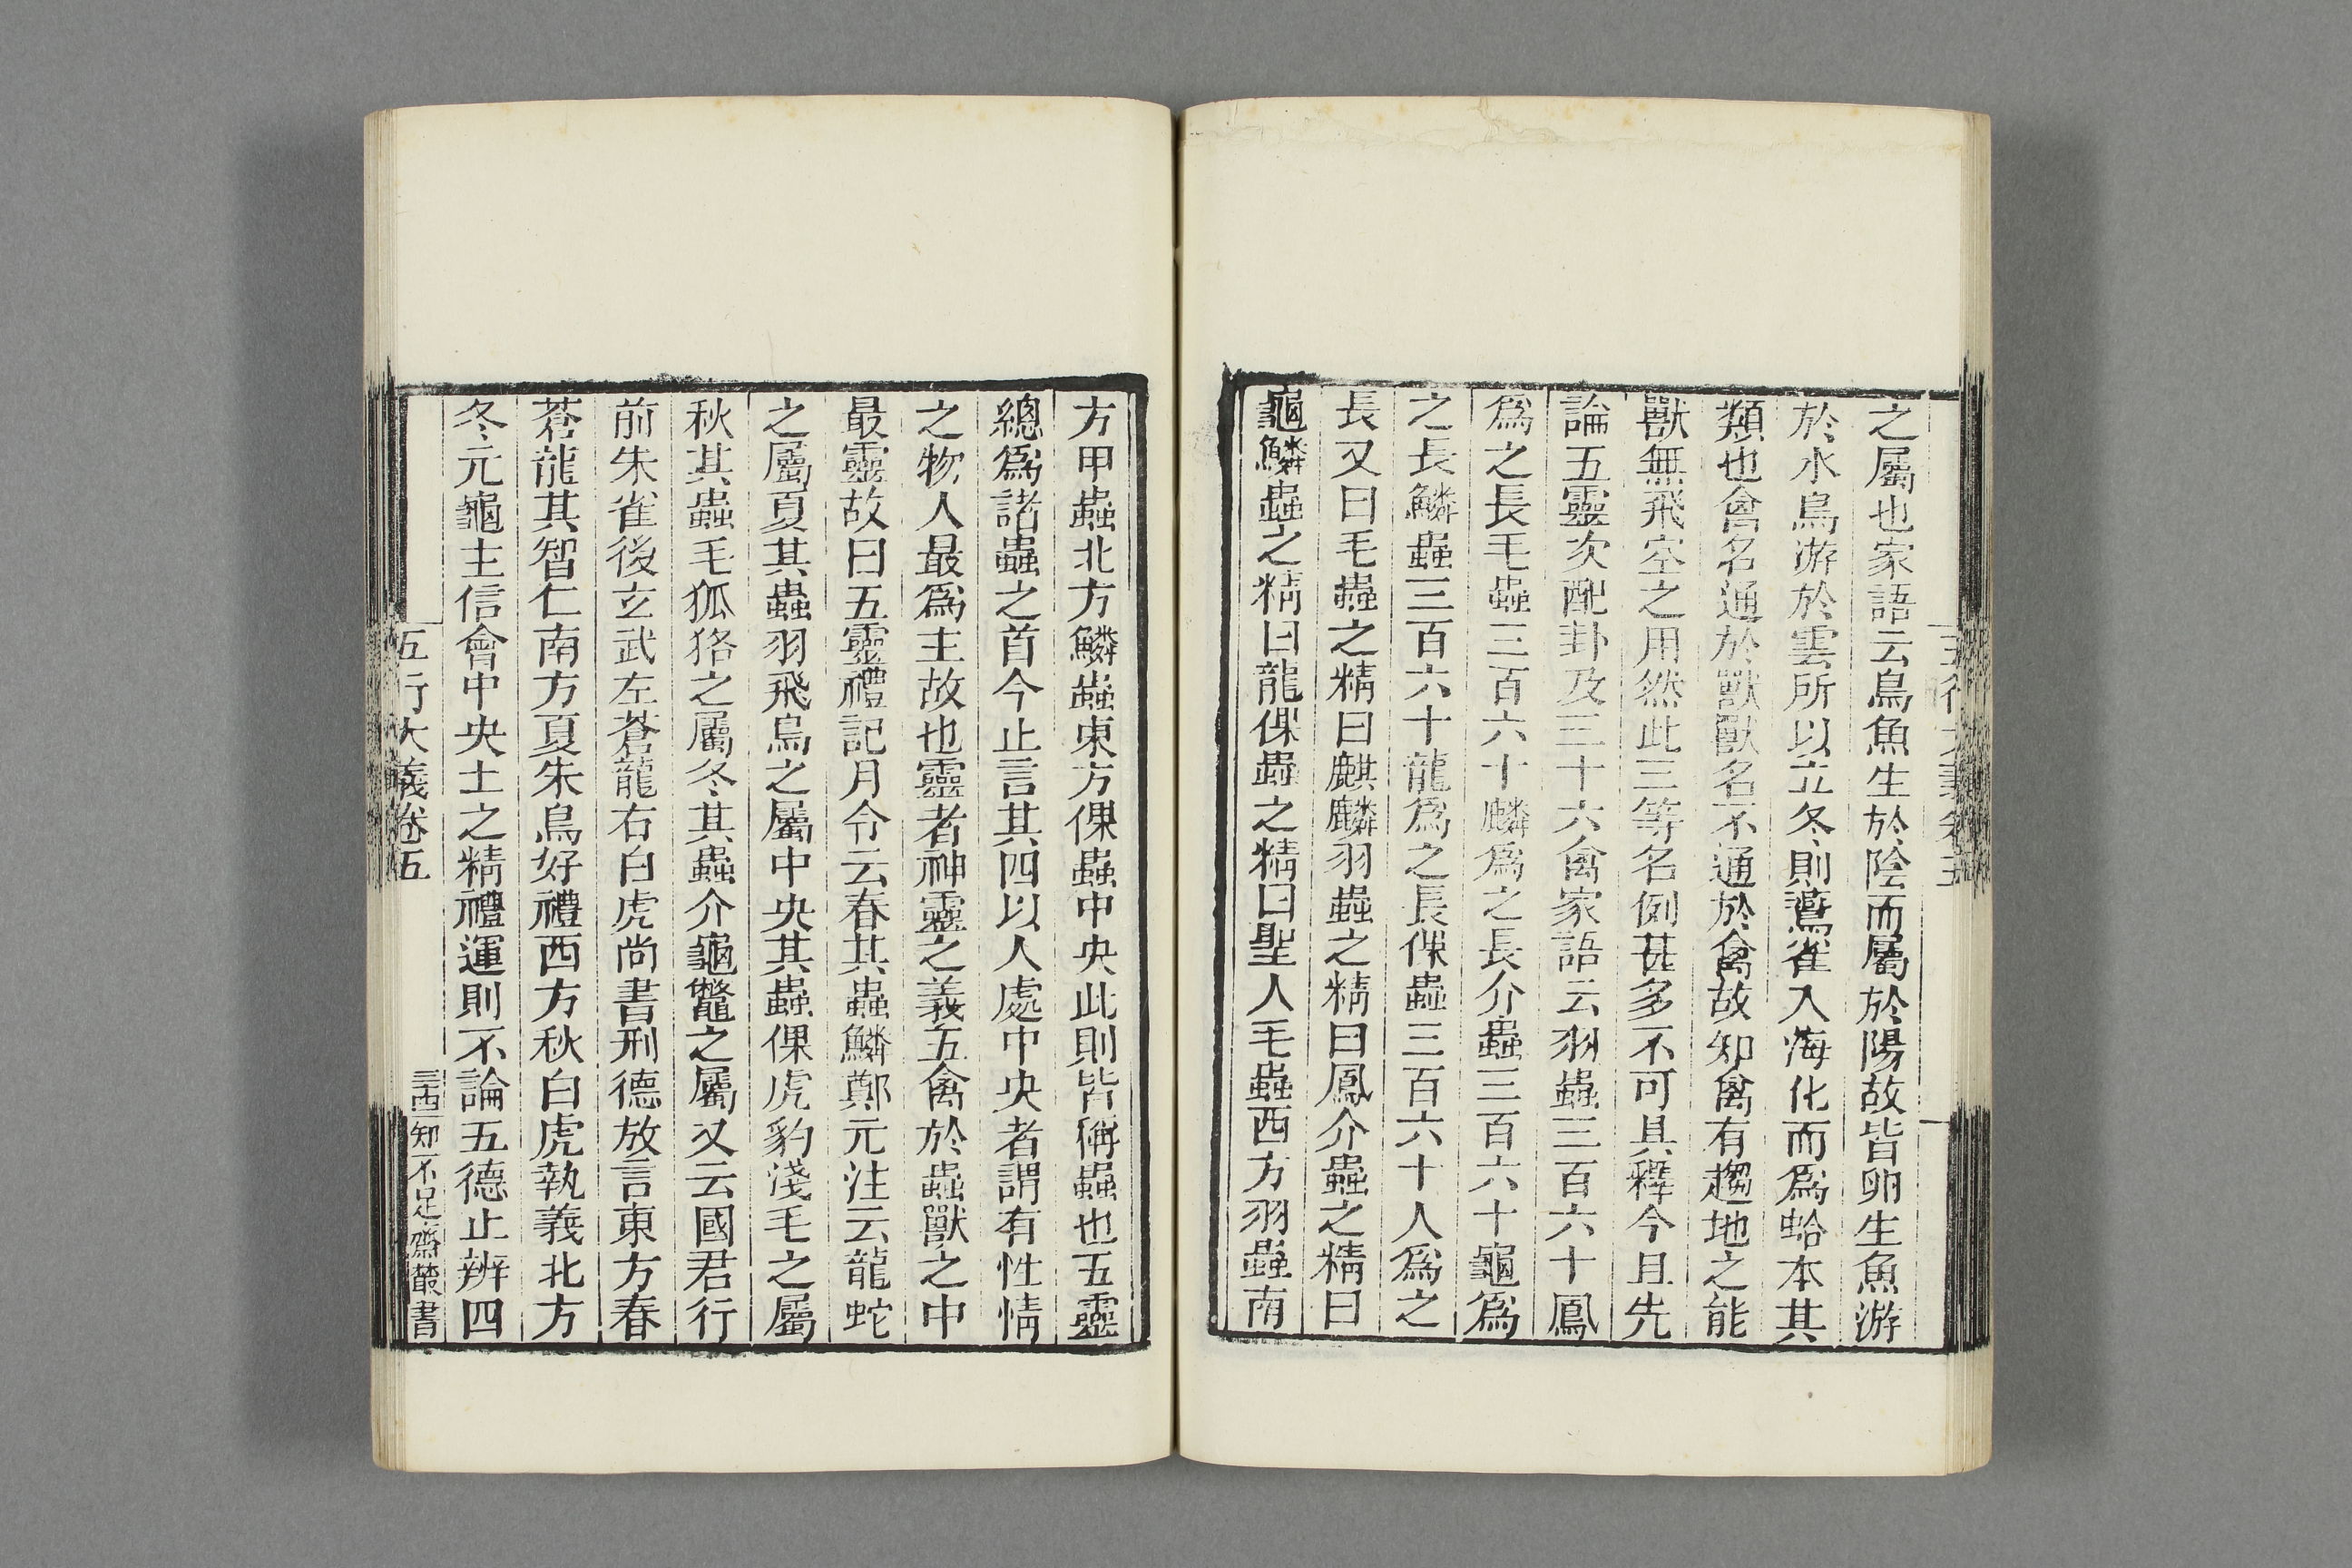 之屬也家語云鳥魚生於陰而屬於陽故皆卵生魚游
於水鳥游於雲所以立冬則鷰雀入海化而爲蛤本其
類也會名通於獸獸名不通於禽故知禽有趨地之能
獸無飛空之用然此三等名例甚多不可具釋今且先
論五靈次配卦及三十六禽家語云羽蟲三百六十鳳
爲之長毛蟲三百六十麟爲之長介蟲三百六十龜爲
之長鱗蟲三百六十龍爲之長倮蟲三百六十人爲之
長又曰毛蟲之精曰麒麟羽蟲之精曰鳳介蟲之精曰
龜鱗蟲之精曰龍倮蟲之精曰聖人毛蟲西方羽蟲南
方甲蟲北方鱗蟲東方倮蟲中央此則皆稱蟲也五靈
總爲諸蟲之首今止言其四以人處中央者謂有性情
之物人最爲主故也靈者神靈之義五禽於蟲獸之中
最靈故曰五靈禮記月令云春其蟲鱗鄭元注云龍蛇
之屬夏其蟲羽飛鳥之屬中央其蟲倮虎豹淺毛之屬
秋其蟲毛狐狢之屬冬其蟲介龜鼈之屬又云國君行
前朱雀後玄武左蒼龍右白虎尚書刑德放言東方春
蒼龍其智仁南方夏朱鳥好禮西方秋白虎執義北方
冬元龜主信會中央土之精禮運則不論五德止辨四
五行大義卷五
知不足齋叢書